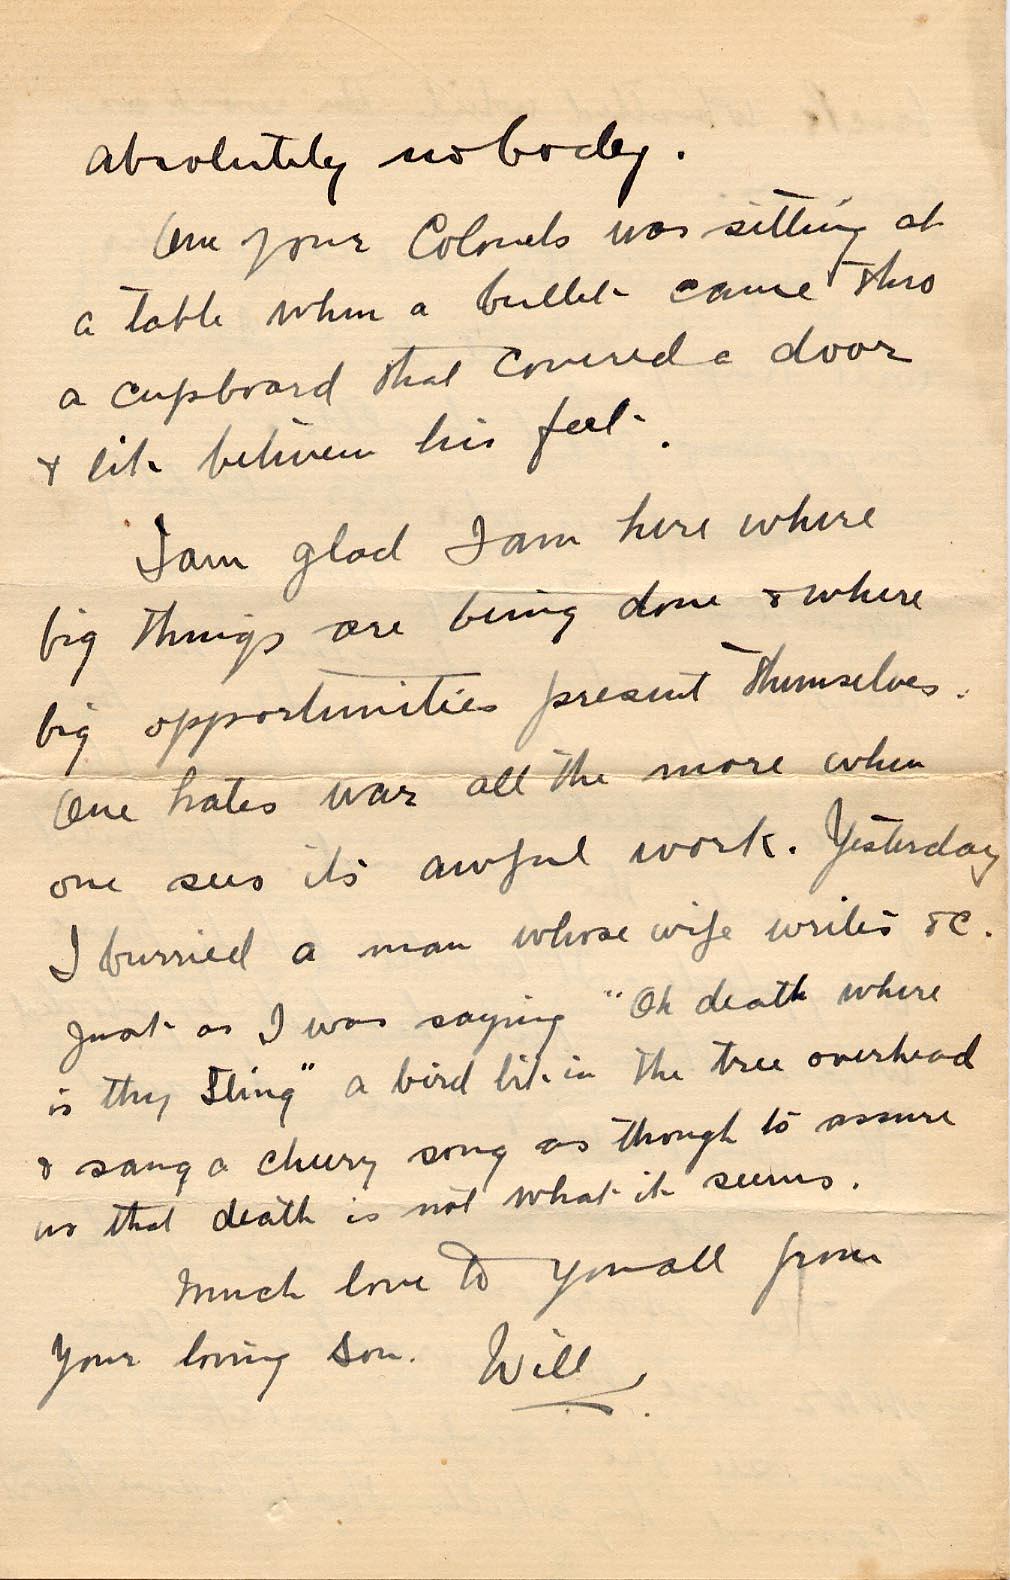 absolutely nobody.
One of our Colonels was sitting at
a table when a bullet came thro
a cupboard that covered a door
& lit between his feet.
I am glad I am here where
big things are being done & where
big opportunities present themselves.
One hates war all the more when
one sees its awful work. Yesterday
I burried a man whose wife writes &c.
Just as I was saying "Oh death where
is thy Sting" a bird lit in the tree overhead
& sang a cheery song as though to assure
us that death is not what it seems.
Much love to you all from
Your loving Son. Will